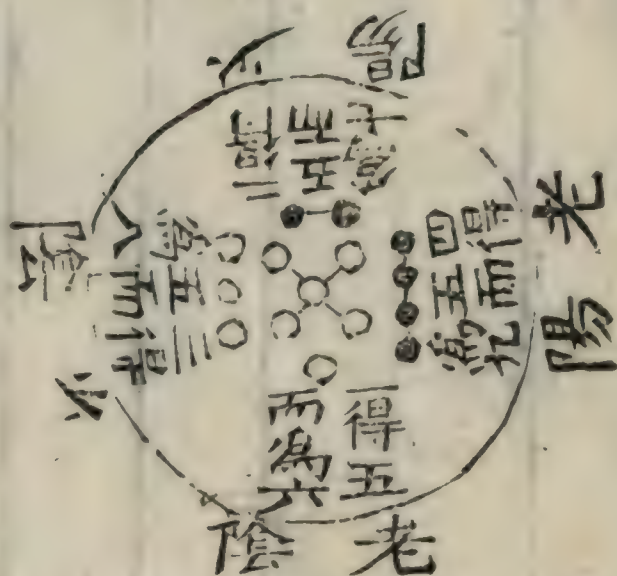 少陽
二得五而為七
老陽
四得
五而
為九
少陰
三得
五而
為八
一得五
而為六
老陰